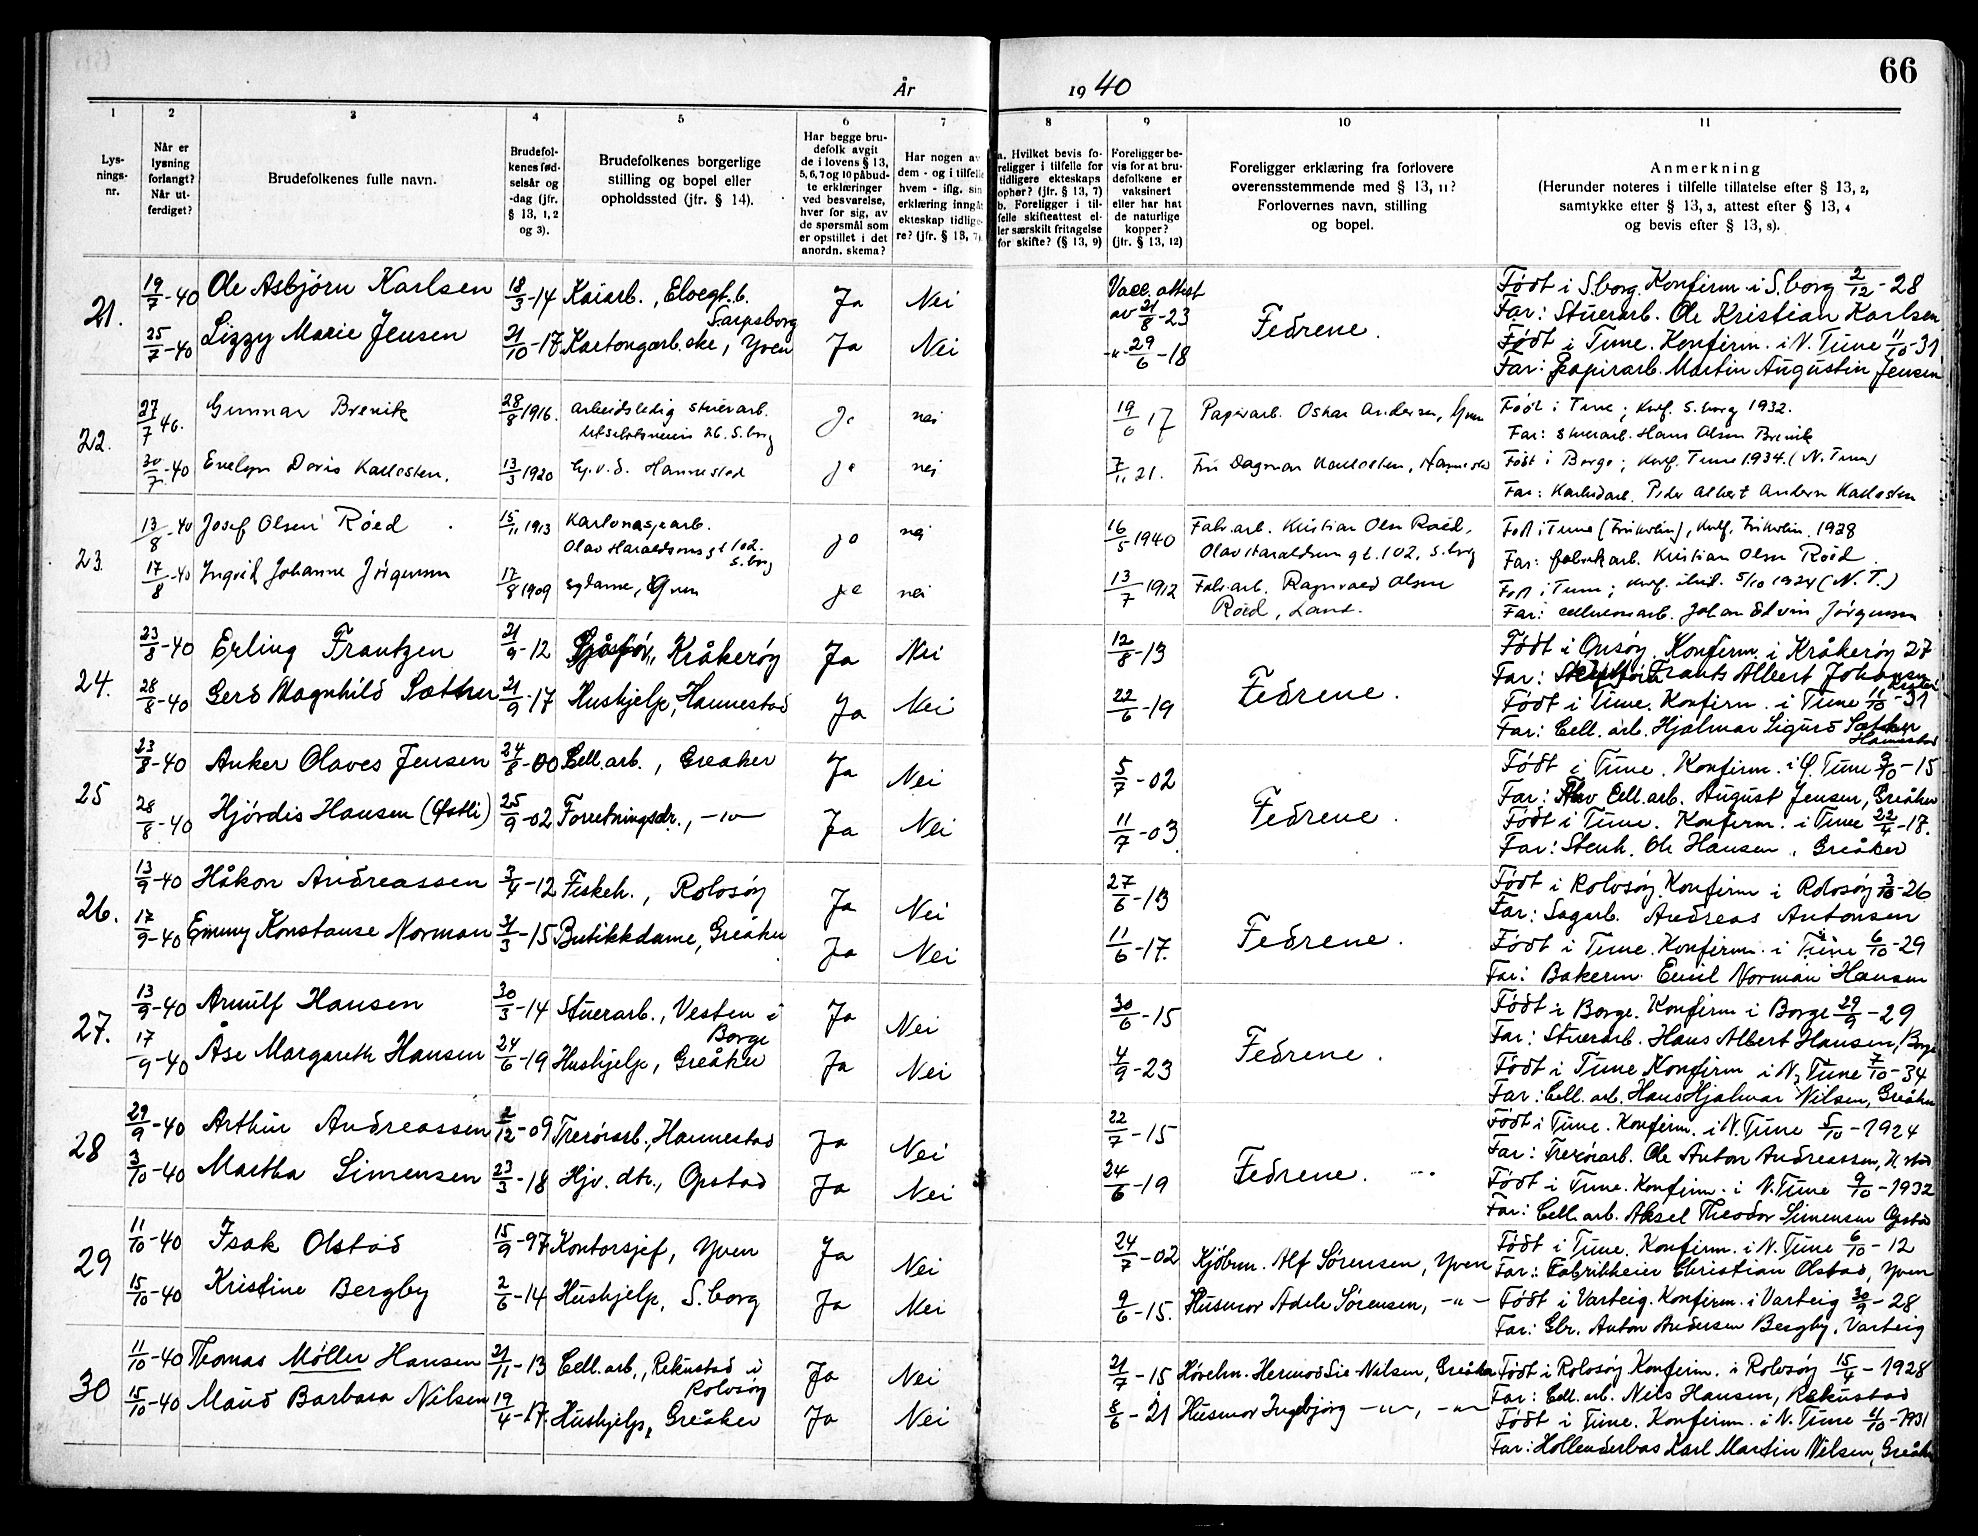 66
År 1940
1 2 3 4 5 6 7 8 9 10 11
Lys-
nings-
nr.
Når er
lysning
forlangt?
Når ut-
ferdiget?
Brudefolkenes fulle navn.
Brudefol-
kenes fød-
selsår og
-dag (jfr.
§ 13, 1, 2
og 3).
Brudefolkenes borgerlige
stilling og bopel eller
opholdssted (jfr. § 14).
Har begge bru-
defolk avgit
de i lovens § 13,
5, 6, 7 og 10 påbud-
te erklæringer
ved besvarelse,
hver for sig, av
de spørsmål som
er opstillet i det
anordn. skema?
Har nogen av
dem - og i tilfelle
hvem - iflg. sin
erklæring inngåt
ekteskap tidlige-
re? (jfr. § 13, 7)
a. Hvilket bevis fo-
religger i tilfelle for
tidligere ekteskaps
ophør? (jfr. § 13, 7)
b. Foreligger i til-
felle skifteattest el-
ler særskilt fritagelse
for skifte? (§ 13, 9)
Foreligger be-
vis for at bru-
defolkene er
vaksinert
eller har hat
de naturlige
kopper?
(jfr. § 13, 12)
Foreligger erklæring fra forlovere
overensstemmende med § 13, 11?
Forlovernes navn, stilling
og bopel.
Anmerkning
(Herunder noteres i tilfelle tillatelse efter § 13, 2,
samtykke efter § 13, 3, attest efter § 13, 4
og bevis efter § 13, 8).
21. 19/7-40 Ole Asbjørn Karlsen 18/3-14 Kaiarb., Elvegt. 6. Sarpsborg Ja Nei Vacc. attest av 21/8-23 Fedrene. Født i S.borg. Konfirm. i S.borg 2/12-28
Far: Stuerarb. Ole Kristian Karlsen
25/7-40 Lizzy Marie Jensen 21/10-17 Kartongarb.ske, Yven Ja Nei -"- 29/6-18 Født i Tune. Konfirm. i N. Tune 11/10-31
Far: Papirarb. Martin Augustin Jensen
22. 27/7 40. Gunnar Brenik 28/8 1916. arbeidsledig stuerarb. 26. S.borg ja nei 19/6 17 Papirarb. Oskar Andersen, Yven Født i Tune; konf. S.borg 1932.
Far: stuerarb. Hans Olsen Brenik
30/7-40 Evelyn Doris Karlosten. 13/3 1920 Hj.v.d. Hannestad ja nei 7/11 21. Fru Dagmar Karlosten, Født i Borge; konf. Tune 1934. (N. Tune)
Far: Peder Albert Andersen Karlosten
23. 13/8-40 Josef Olsen Röed 15/11 1913 Kartonasjearb. Olav Haraldsons gt 102. S.borg ja nei 16/5 1940 Fabr.arb. Kristian Olsen Roëd, Olav Haraldsons gt. 102, S.borg Født i Tune, Konf. 1928
Far: fabrikarb. Kristian Olsen Roëd
17/8-40 Ingrid Johanne Jörgensen 17/8 1909 sydame, Yven ja nei 13/7 1912 Fabr.arb. Ragnvald Olsen Roëd, Født i Tune; konf. ibid. 5/10 1924 (N. T.)
Far: cellulosearb. Johan Edvin Jörgensen
24. 23/8-40 Erling Frantzen 21/9-12 Kråkerøy Ja Nei 12/8-13 Fedrene. Født i Onsøy. Konfirm. i Kråkerøy 27
Far: Frants Albert Johansen
28/8-40 Gerd Magnhild Sæther 21/9-17 Hushjelp, Hannestad Ja Nei 22/6-19 Født i Tune. Konfirm. i Tune 11/10-31
Far: Cell. arb. Hjalmar Sigurd Sæther Hannestad
25 23/8-40 Anker Olaves Jensen 24/8-00 Cell.arb., Greaker Ja Nei 5/7-02 Fedrene. Født i Tune. Konfirm. i Tune 3/10-15
Far: Cell.arb. August Jensen, Greåker
28/8-40 Hjördis Hansen (Østli) 25/9-02 Forretningsdr., -"- Ja Nei 11/7-03 Født i Tune. Konfirm. i Tune 22/4-17.
Far: Stenh. Ole Hansen, Greåker
26. 13/9-40 Håkon Andreassen 3/4-12 Fiskeh., Rolvsøy Ja Nei 27/6-13 Fedrene. Født i Rolvsøy. Konfirm i Rolvsøy 3/10-26
Far: Sagarb. Andreas Antonsen
17/9-40 Emmy Konstanse Norman 31/3-15 Butikkdame, Greåker Ja Nei 11/6-17. Født i Tune. Konfirm. i Tune 6/10-29
Far: Bakerm. Emil Norman Hansen
27. 13/9-40 Arnulf Hansen 30/3-14 Stuerarb., Vesten i Borge Ja Nei 30/6-15 Fedrene. Født i Borge. Konfirm i Borge 29/9-29
Far: Stuerarb. Hans Albert Hansen, Borge
17/9-40 Åse Margareth Hansen 24/6-19 Hushjelp, Greåker Ja Nei 4/9-23 Født i Tune Konfirm i N. Tune 7/10-34
Far: Cell. arb. Hans Hjalmar Nilsen, Greåker
28 29/9-40 Arthur Andreassen 2/12-09 Trerörarb., Hannestad Ja Nei 22/7-15 Fedrene. Født i Tune. Konfirm. i N. Tune 5/10-1924
Far: Trerörarb. Ole Anton Andreassen, H.stad
3/10-40 Martha Simensen 23/3-18 Hjv. dtr., Opstad Ja Nei 24/6-19 Født i Tune. Konfirm. i N. Tune 9/10-1932
Far: Cell. arb. Aksel Theodor Simensen Opstad
29 11/10-40 Isak Olstad 15/9-97 Kontorsjef, Yven Ja Nei 24/7-02 Kjöbm. Alf Sørensen, Yven Født i Tune. Konfirm. i N. Tune 6/10-12
Far: Fabrikkeier Christian Olstad, Yven
15/10-40 Kristine Bergby 2/6-14 Hushjelp, S.borg Ja Nei 9/6-15. Husmor Adele Sørensen, -"- Født i Varteig. Konfirm. i Varteig 30/9-28
Far: Gbr. Anton Andersen Bergby, Varteig
30 11/10-40 Thomas Möller Hansen 21/11-13 Cell. arb., Rekustad i Rolvsøy Ja Nei 21/7-15 Høvelm. Hermod Sie Nilsen, Greåker Født i Rolvsøy Konfirm. i Rolvsøy 15/4-1928
Far: Cell. arb. Nils Hansen, Rekustad
15/10-40 Maud Barbara Nilsen 19/4-17. Hushjelp, Greåker Ja Nei 8/6-21 Husmor Ingebjørg -"-, -"- Født i Tune. Konfirm. i N. Tune 11/10-1931
Far: Hollenderbas Karl Martin Nilsen, Greåker